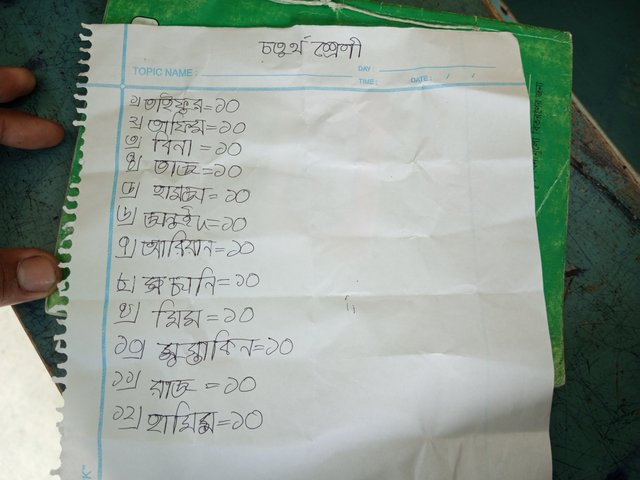 চতুর্থ শ্রেণী
TOPIC NAME :
DAY :
TIME :
DATE : / /
১) তাইফুর=১০
২) অফিম=১০
৩) বিনা =১০
৪) তাজ=১০
৫) হামজা=১০
৬) =১০
৭) আরিয়ান=১০
৮) =১০
৯) মিম=১০
১০) মুস্তাকিন=১০
১১) রাজ =১০
১২) হামিম=১০